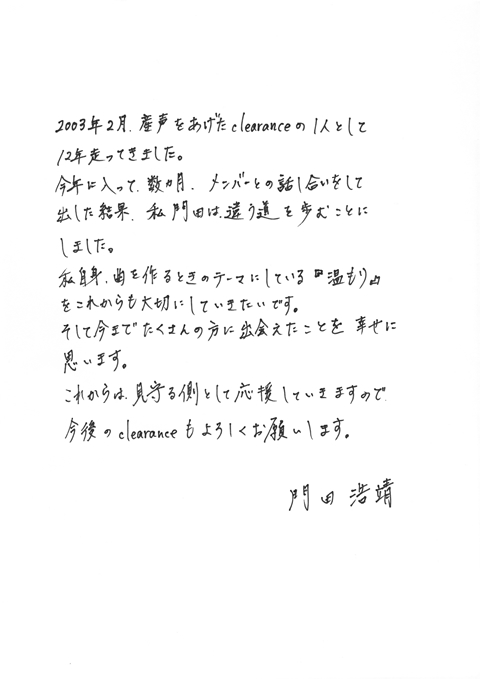 2003年2月、産声をあげたclearanceの1人として
12年走ってきました。
今年に入って、数カ月、メンバーとの話し合いをして
出した結果、私 門田は、違う道を歩むことに
しました。
私自身、曲を作るときのテーマにしている『温もり』
をこれからも大切にしていきたいです。
そして今までたくさんの方に出会えたことを 幸せに
思います。
これからは、見守る側として応援していきますので
今後のclearanceもよろしくお願いします。
門田 浩靖